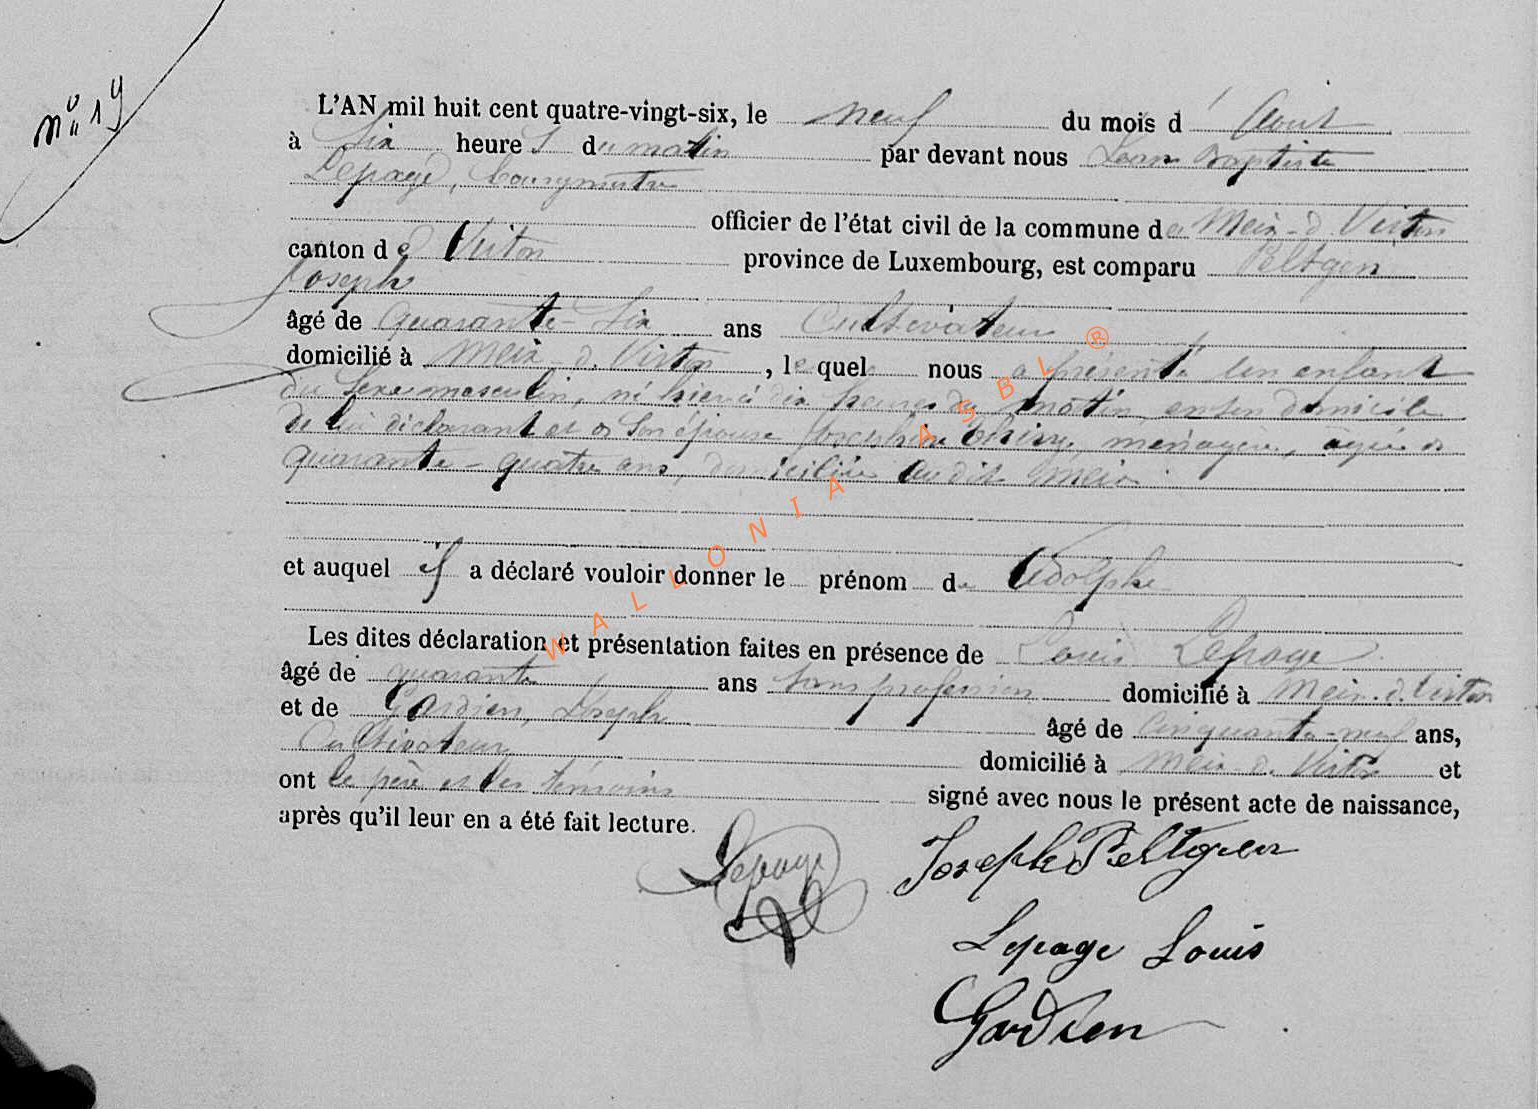 n° 19
L'AN mil huit cent quatre-vingt-six, le neuf du mois d' Aout
à six heures du matin par devant nous Jean Baptiste
Lepage, bourgmestre
officier de l'état civil de la commune de Meix-d. Virton
canton de Virton province de Luxembourg, est comparu Peltgen
Joseph
âgé de quarante-six ans Cultivateur
domicilié à Meix-d. Virton, le quel nous a présenté un enfant
du sexe masculin, né hier à dix heures du matin en son domicile
de lui déclarant et de son épouse Joséphine Thiry, ménagère, agée de
quarante-quatre ans, domiciliée au dit Meix
et auquel il a déclaré vouloir donner le prénom de Adolphe
Les dites déclaration et présentation faites en présence de Louis Lepage
âgé de quarante ans sans profession domicilié à Meix-d. Virton
et de Gardien, Joseph âgé de cinquante-neuf ans,
Cultivateur domicilié à Meix-d. Virton et
ont le père et les témoins signé avec nous le présent acte de naissance,
après qu'il leur en a été fait lecture.
Lepage
Joseph Peltgen
Lepage Louis
Gardien
WALLONIA ASBL ®